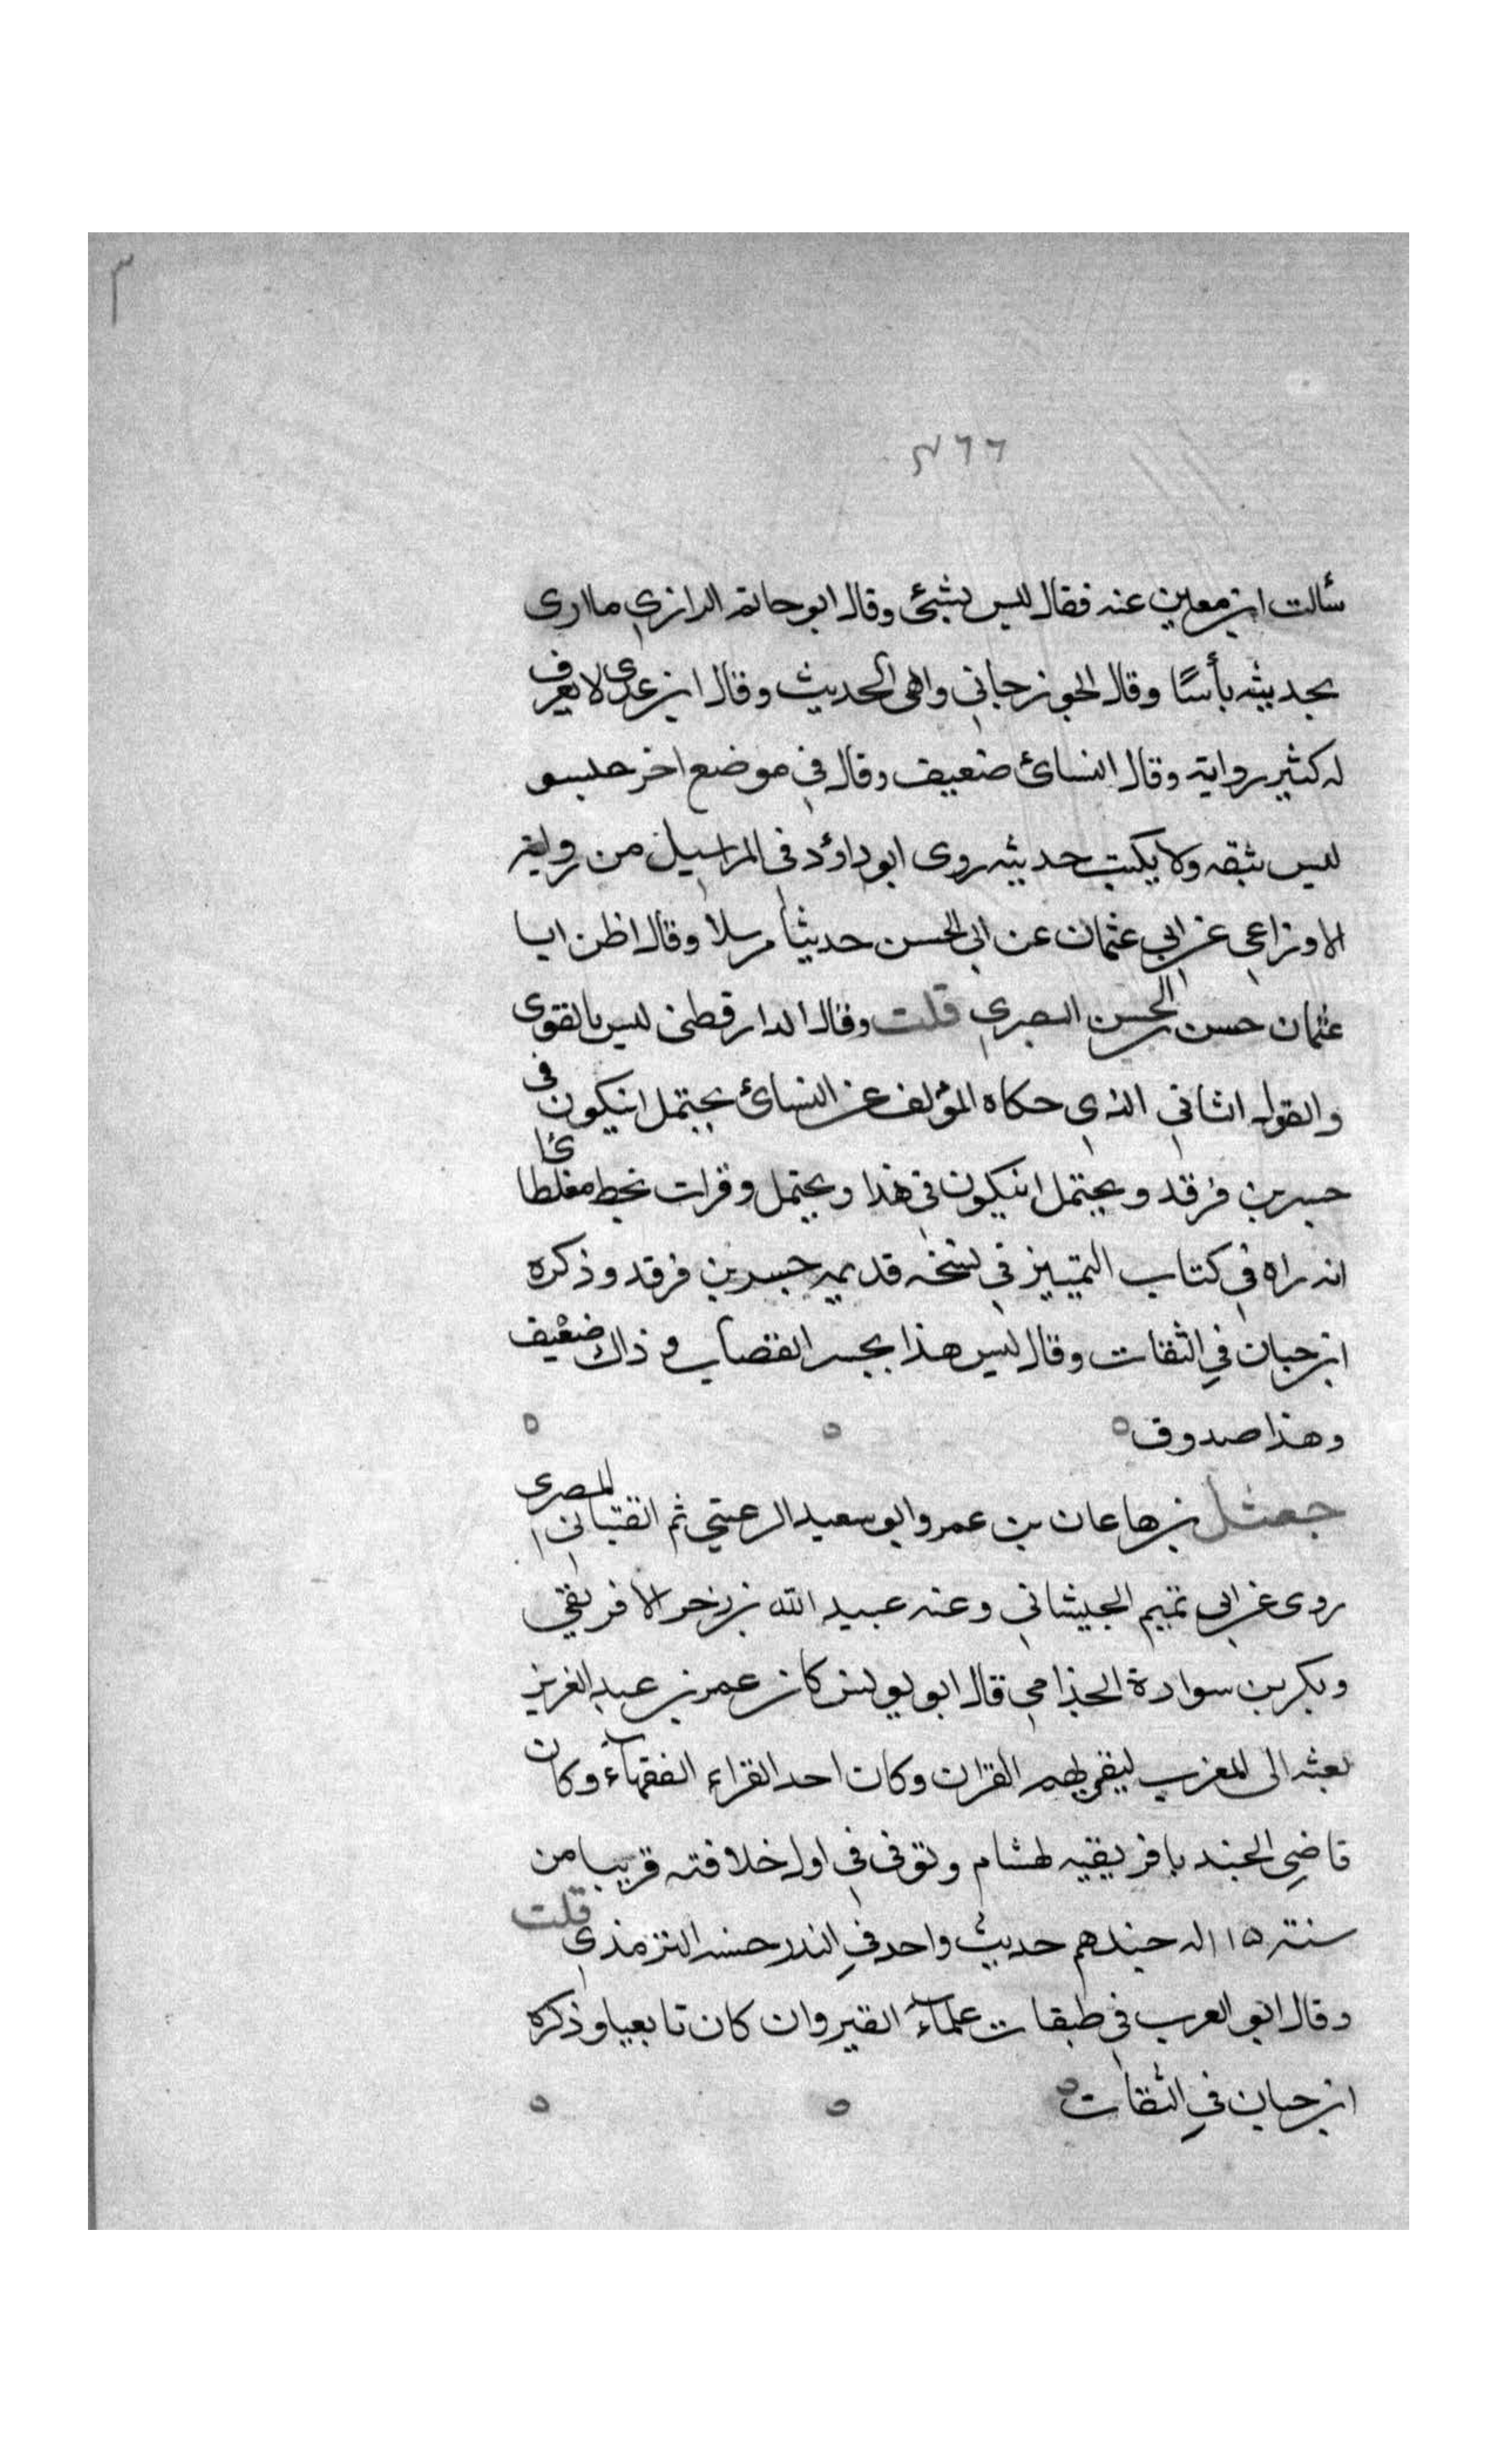 ٣
٢٦٦
سألت ابن معين عنه فقال ليس بشئ وقال ابو حاتم الرازي ما ارى
بحديثه بأسًا وقال الجوزجاني واهى الحديث وقال ابن عدى لا يعرف
له كثير رواية وقال النسائ ضعيف وقال في موضع اخر
ليس بثقه ولا يكتب حديثه روى ابو داؤد في المراسيل من رواية
الاوزاعي عن ابي عثمان عن ابي الحسن حديثا مرسلا وقال اظن ابا
عثمان حسن الحسن البصري قلت وقال الدارقطنى ليس بالقوى
والقول الثاني الذي حكاه المؤلف عن النسائ يحتمل انيكون في
جسر بن فرقد ويحتمل انيكون في هذا ويحتمل وقرات بخط مغلطائ
انه راه في كتاب التمييز في نسخه قديمه جسر بن فرقد وذكره
ابن حبان في الثقات وقال ليس هذا بجسر القصاب و ذاك ضعيف
وهذا صدوق
جعثل بن هاعان بن عمرو ابو سعيد الرعيني ثم القتباني المصرى
روى عن ابي تميم الجيشاني وعنه عبيد الله بن زحر الافريقي
وبكر بن سوادة الجذامي قال ابو يونس كان عمر بن عبد العزيز
بعثه الى المغرب ليقريهم القران وكان احد القراء الفقهاء وكان
قاضي الجند بافريقيه لهشام وتوفى في اول خلافته قريبا من
سنة ١١٥ له عندهم حديث واحد في النذر حسنه الترمذي قلت
وقال ابو العرب في طبقات علماء القيروان كان تابعيا وذكره
ابن حبان في الثقات